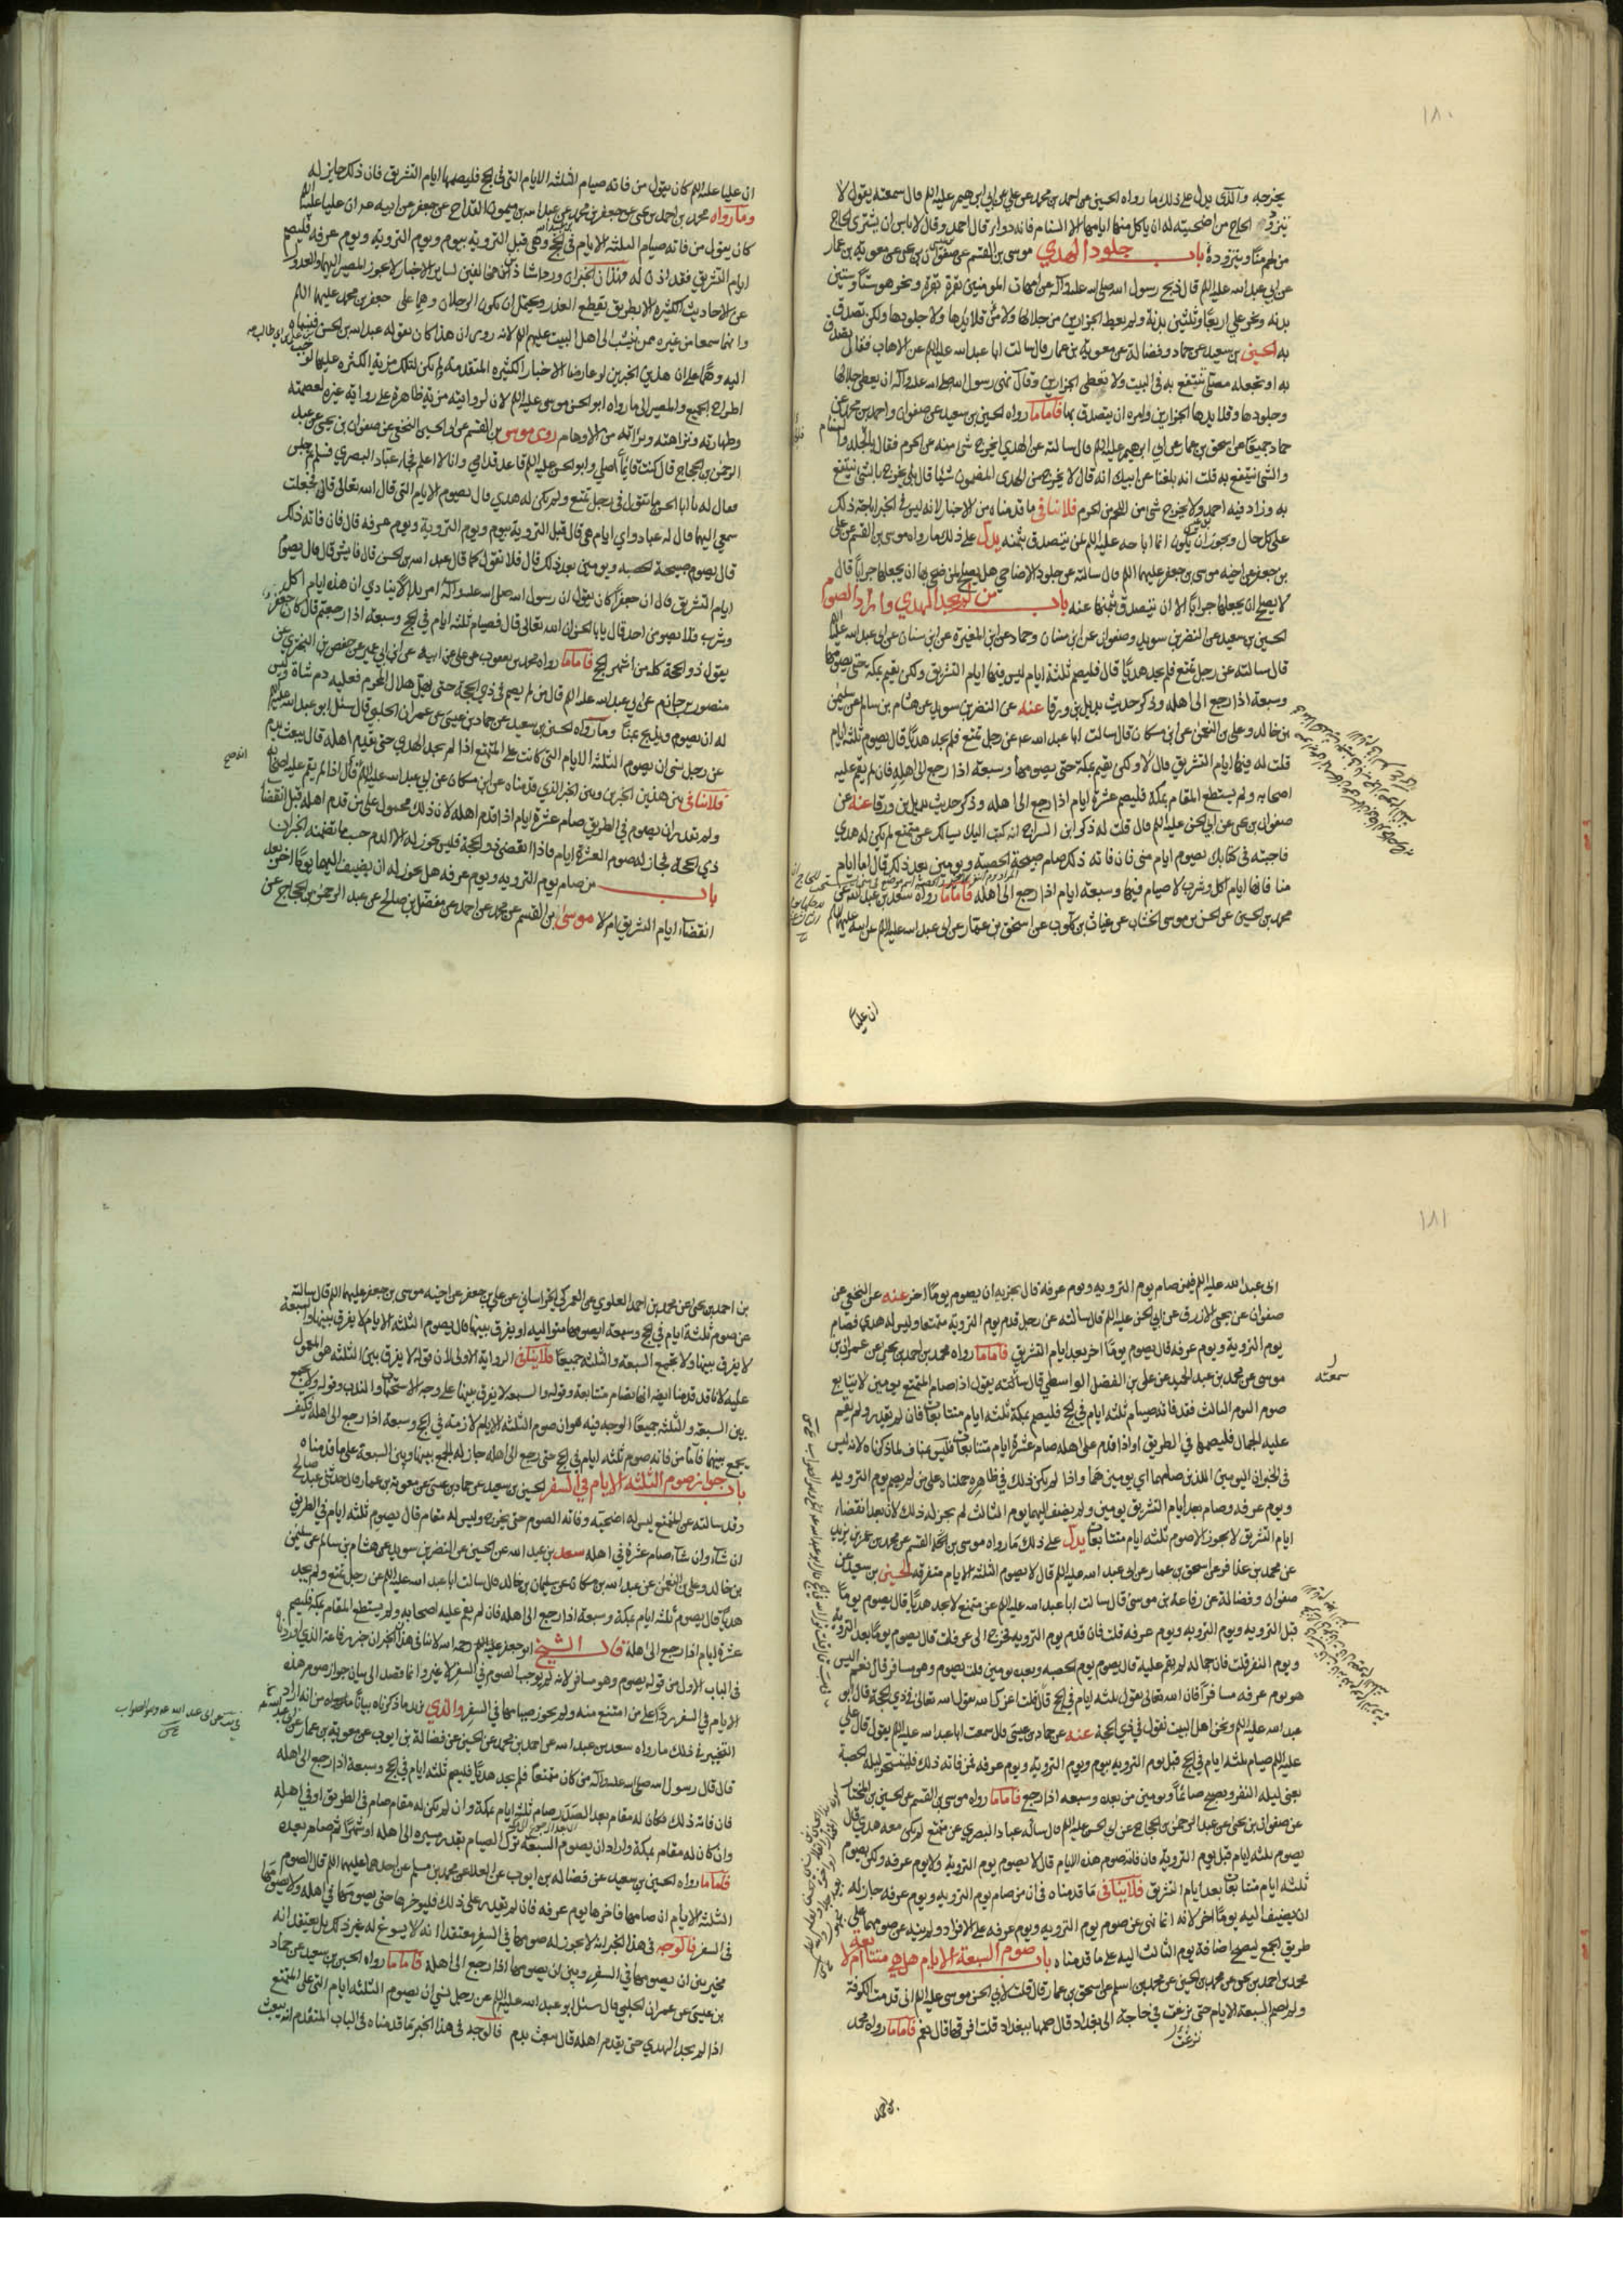 ١٨٠
يخرجه والذي يدل على ذلك ما رواه الحسين عن احمد بن محمد عن علي عن ابي ابرهيم عليه الم قال سمعته يقول لا
يتزود الحاج من اضحيته وله ان ياكل منها ايامها الا السنام فانه دواء قال احمد وقال لا باس ان يشتري الحاج
من لحم منا ويتزوده باب جلود الهدي موسى بن القسم عن صفوان بن يحيى عن معوية بن عمار
عن ابي عبد الله عليه الم قال ذبح رسول الله صلى الله عليه وآله عن امهات المومنين بقرة بقرة ونحر هو ستا وستين
بدنة ونحر علي اربعا وثلثين بدنة ولم يعط الجزارين من جلالها ولا من قلائدها ولا جلودها ولكن تصدق
به الحسين بن سعيد عن حماد وفضالة عن معوية بن عمار قال سالت ابا عبد الله عليه الم عن الاهاب فقال تصدق
به او تجعله مصلى تنتفع به في البيت ولا تعطي الجزارين وقال نهى رسول الله صلى الله عليه وآله ان يعطى جلالها
وجلودها وقلايدها الجزارين وامره ان يتصدق بها فاما ما رواه الحسين بن سعيد عن صفوان واحمد بن محمد عن
حماد جميعا عن اسحق بن عمار عن ابي ابرهيم عليه الم قال سالته عن الهدي ايخرج شي منه عن الحرم فقال بالجلد والسنام
والشي ينتفع به قلت انه بلغنا عن ابيك انه قال لا يخرج من الهدي المضمون شيا قال بلى يخرج بالشي ينتفع
به وزاد فيه احمد ولا يخرج شي من اللحم من الحرم فلا ينافي ما قدمناه من الاخبار لانه ليس في الخبر اباحة ذلك
على كل حال ويجوز ان يكون انما اباحه عليه الم لمن يتصدق بثمنه يدل على ذلك ما رواه موسى بن القسم عن علي
بن جعفر عن اخيه موسى بن جعفر عليهما الم قال سالته عن جلود الاضاحي هل يصلح لمن ضحى بها ان يجعلها جرابا قال
لا يصلح ان يجعلها جرابا الا ان يتصدق بثمنها عنه باب من لم يجد الهدي واراد الصوم
الحسين بن سعيد عن النضر بن سويد وصفوان عن ابن سنان وحماد عن ابن المغيرة عن ابن سنان عن ابي عبد الله عليه الم
قال سالته عن رجل تمتع فلم يجد هديا قال فليصم ثلثة ايام ليس فيها ايام التشريق ولكن يقيم بمكة حتى يصومها
وسبعة اذا رجع الى اهله وذكر حديث بديل بن ورقا عنه عن النضر بن سويد عن هشام بن سالم عن سليمن
بن خالد وعلي بن النعمن عن ابن مسكان قال سالت ابا عبد الله عم عن رجل تمتع فلم يجد هديا قال يصوم ثلثة ايام
قلت له فيها ايام التشريق قال لا ولكن يقيم بمكة حتى يصومها وسبعة اذا رجع الى اهله فان لم يقم عليه
اصحابه ولم يستطع المقام بمكة فليصم عشرة ايام اذا رجع الى اهله وذكر حديث بديل بن ورقا عنه عن
صفوان بن يحيى عن ابي الحسن عليه الم قال قلت له ذكر ابن السراج انه كتب اليك يسالك عن متمتع لم يكن له هدي
فاجبته في كتابك يصوم ايام منى فان فاته ذلك صام صبيحة الحصبة ويومين بعد ذلك قال اما ايام
منا فانها ايام اكل وشرب لا صيام فيها وسبعة ايام اذا رجع الى اهله فاما ما رواه سعد بن عبد الله عن
محمد بن الحسين عن الحسن بن موسى الخشاب عن غياث بن كلوب عن اسحق بن عمار عن ابي عبد الله عليه الم عن ابيه عليهما الم
ان عليا
ان عليا عليه الم كان يقول من فاته صيام الثلثه الايام التي في الحج فليصمها ايام التشريق فان ذلك جايز له
وما رواه محمد بن احمد بن يحيى عن جعفر بن محمد عن عبد الله بن ميمون القداح عن جعفر عن ابيه عم ان عليا عليه الم
كان يقول من فاته صيام الثلثه الايام في الحج وهي قبل التروية بيوم ويوم التروية ويوم عرفه فليصم
ايام التشريق فقد اذن له فهذان الخبران وردا شاذين مخالفين لساير الاخبار لا يجوز المصير اليهما والعدول
عن الاحاديث الكثيره الا بطريق يقطع العذر ويحتمل ان يكون الرجلان وهما على جعفر بن محمد عليهما الم
وانهما سمعا من غيره ممن ينتسب الى اهل البيت عليهم الم لانه روى ان هذا كان يقوله عبد الله بن الحسن فنسباه
اليه وهما على ان هذين الخبرين لو عارضا الاخبار الكثيره المتقدمة ولم يكن لتلك مزية الكثره عليهما لوجب
اطراح الجميع والمصير الى ما رواه ابو الحسن موسى عليه الم لان لروايته مزية ظاهرة على رواية غيره لعصمته
وطهارته ونزاهته وبرآته من الاوهام روى موسى بن القسم عن ابي الحسين النخعي عن صفوان بن يحيى عن عبد
الرحمن بن الحجاج قال كنت قائما اصلي وابو الحسن عليه الم قاعد قدامي وانا لا اعلم فجاء عباد البصري فسلم ثم جلس
فقال له يا ابا الحسن ما تقول في رجل تمتع ولم يكن له هدي قال يصوم الايام التي قال الله تعالى قال فجعلت
سمعي اليهما قال له عباد واي ايام هي قال قبل التروية بيوم ويوم التروية ويوم عرفه قال فان فاته ذلك
قال يصوم صبيحة الحصبه ويومين بعد ذلك قال فلا تقول كما قال عبد الله بن الحسن قال فاي شي قال قال يصوم
ايام التشريق قال ان جعفرا كان يقول ان رسول الله صلى الله عليه وآله امر بديلا ينادي ان هذه ايام اكل
وشرب فلا يصومن احد قال يا ابا الحسن ان الله تعالى قال فصيام ثلثه ايام في الحج وسبعة اذا رجعتم قال كان جعفر
يقول ذو الحجة كله من اشهر الحج فاما ما رواه محمد بن يعقوب عن علي عن ابيه عن ابن ابي عمير عن حفص بن البختري عن
منصور بن حازم عن ابي عبد الله عليه الم قال من لم يصم في ذي الحجة حتى يهل هلال المحرم فعليه دم شاة وليس
له ان يصوم ويذبح بمنا وما رواه الحسين بن سعيد عن حماد بن عيسى عن عمران الحلبي قال سئل ابو عبد الله عليه الم
عن رجل نسي ان يصوم الثلثة الايام التي كانت على المتمتع اذا لم يجد الهدي حتى يقدم اهله قال يبعث بدم
فلا تنافي بين هذين الخبرين وبين الخبر الذي قدمناه عن ابن مسكان عن ابي عبد الله عليه الم
ولم يقدر ان يصوم في الطريق صام عشرة ايام اذا قدم اهله لان ذلك محمول على من قدم اهله قبل انقضا
ذي الحجة فجاز له صوم العشرة ايام فاذا انقضى ذو الحجة فليس يجوز له الا الدم حسب ما تضمنه الخبران
باب من صام يوم الترويه ويوم عرفه هل يجوز له ان يضيف اليهما يوما اخر بعد
انقضاء ايام التشريق ام لا موسى بن القسم عن محمد عن احمد عن مفضل بن صالح عن عبد الرحمن بن الحجاج عن
١٨١
ابي عبد الله عليه الم فيمن صام يوم الترويه ويوم عرفه قال يجزيه ان يصوم يوما اخر عنه عن النخعي عن
صفوان عن يحيى الازرق عن ابي الحسن عليه الم قال سالته عن رجل قدم يوم التروية متمتعا وليس له هدي فصام
يوم التروية ويوم عرفه قال يصوم يوما اخر بعد ايام التشريق فاما ما رواه محمد بن احمد بن يحيى عن عمران بن
موسى عن محمد بن عبد الحميد عن علي بن الفضل الواسطي قال سالته يقول اذا صام المتمتع يومين لا يتابع
سمعته
صوم اليوم الثالث فقد فاته صيام ثلثه ايام في الحج فليصم بمكة ثلثه ايام متتابعات فان لم يقدر ولم يقم
عليه الجمال فليصمها في الطريق او اذا قدم على اهله صام عشرة ايام متتابعات فليس مناف لما ذكرناه لانه ليس
في الخبر ان اليومين اللذين صامهما اي يومين هما واذا لم يكن ذلك في ظاهره حملناه على من لم يصم يوم الترويه
ويوم عرفه وصام بعد ايام التشريق يومين ولم يضف اليهما يوم الثالث لم يجز له ذلك لان بعد انقضاء
ايام التشريق لا يجوز الا صوم ثلثه ايام متتابعات يدل على ذلك ما رواه موسى بن القسم عن محمد بن عمر بن يزيد
عن محمد بن عذافر عن اسحق بن عمار عن ابي عبد الله عليه الم قال لا يصوم الثلثه الايام متفرقه الحسين بن سعيد عن
صفوان وفضالة عن رفاعة بن موسى قال سالت ابا عبد الله عليه الم عن متمتع لا يجد هديا قال يصوم يوما
قبل الترويه ويوم الترويه ويوم عرفه قلت فان قدم يوم الترويه فخرج الى عرفات قال يصوم يوما بعد التروية
ويوم النفر قلت فان جماله لم يقم عليه قال يصوم يوم الحصبه وبعده يومين قلت يصوم وهو مسافر قال نعم اليس
هو يوم عرفه مسافرا فان الله تعالى يقول ثلثه ايام في الحج قال قلت اعزك الله يقول الله تعالى في ذي الحجة قال ابو
عبد الله عليه الم ونحن اهل البيت نقول في ذي الحجة عنه عن حماد بن عيسى قال سمعت ابا عبد الله عليه الم يقول قال علي
عليه الم صيام ثلثه ايام في الحج قبل يوم الترويه بيوم ويوم الترويه ويوم عرفه فمن فاته ذلك فليتسحر ليلة الحصبة
يعني ليلة النفر ويصبح صائما ويومين من بعده وسبعه اذا رجع فاما ما رواه موسى بن القسم عن الحسين بن المختار
عن صفوان بن يحيى عن عبد الرحمن بن الحجاج عن ابي الحسن عليه الم قال ساله عباد البصري عن متمتع لم يكن معه هدي قال
يصوم ثلثه ايام قبل يوم الترويه قال فان فاته صوم هذه الايام قال لا يصوم يوم الترويه ولا يوم عرفه ولكن يصوم
ثلثه ايام متتابعات بعد ايام التشريق فلا ينافي ما قدمناه في ان من صام يوم الترويه ويوم عرفه جاز له
ان يضيف اليه يوما اخر لانه انما نهى عن صوم يوم الترويه ويوم عرفه على الانفراد ولم ينه عن صومهما على
طريق الجمع ليصح اضافة يوم الثالث اليه على ما قدمناه باب صوم السبعة الايام هل هي متتابعة ام لا
محمد بن احمد بن يحيى عن محمد بن الحسين عن محمد بن اسلم عن اسحق بن عمار قال قلت لابي الحسن موسى عليه الم اني قدمت الكوفة
ولم اصم السبعة الايام حتى نزعت في حاجة الى بغداد قال صمها ببغداد قلت افرقها قال نعم فاما ما رواه محمد
نزعت
بن احمد
بن احمد بن يحيى عن محمد بن احمد العلوي عن العمركي الخراساني عن علي بن جعفر عن اخيه موسى بن جعفر عليهما الم قال سالته
عن صوم ثلثة ايام في الحج وسبعة ايصومها متواليه او يفرق بينها قال يصوم الثلثه الايام لا يفرق بينها والسبعة
لا يفرق بينها ولا يجمع السبعة والثلثه جميعا فلا ينافي الرواية الاولى لان قوله لا يفرق بين الثلثه هو المعمول
عليه لانا قد قدمنا ايضا انها تصام متتابعة وقوله والسبعه لا يفرق بينها على وجه الاستحباب والندب وقوله ولا يجمع
بين السبعة والثلثه جميعا الوجه فيه هو ان صوم الثلثه الايام لازمة في الحج وسبعة اذا رجع الى اهله فكيف
يجمع بينها فاما من فاته صوم ثلثه ايام في الحج حتى رجع الى اهله جاز له الجمع بينها وبين السبعة على ما قدمناه
باب جواز صوم الثلثه الايام في السفر الحسين بن سعيد عن حماد بن عيسى عن معوية بن عمار قال حدثني عبد صالح
وقد سالته عن المتمتع ليس له اضحية وفاته الصوم حتى يخرج وليس له مقام قال يصوم ثلثه ايام في الطريق
ان شاء وان شاء صام عشرة في اهله سعد بن عبد الله عن الحسين عن النضر بن سويد عن هشام بن سالم عن سليمن
بن خالد وعلي بن النعمن عن عبد الله بن مسكان عن سليمان بن خالد قال سالت ابا عبد الله عليه الم عن رجل تمتع ولم يجد
هديا قال يصوم ثلثه ايام بمكة وسبعة اذا رجع الى اهله فان لم يقم عليه اصحابه ولم يستطع المقام بمكة فليصم
عشرة ايام اذا رجع الى اهله قال الشيخ ابو جعفر عليه الم رحمه الله لا تنافي هذان الخبران خبر رفاعة الذي اوردناه
في الباب الاول من قوله يصوم وهو مسافر لانه لم يوجب الصوم في السفر لا غير وانما قصد الى بيان جواز صوم هذه
الايام في السفر ردا على من امتنع منه ولم يجوز صيامها في السفر والذي يزيد ما ذكرناه بيانا من انه اراد
التخيير في ذلك ما رواه سعد بن عبد الله عن احمد بن محمد عن الحسين عن فضالة بن ايوب عن معوية بن عمار عن
قال قال رسول الله صلى الله عليه وآله من كان متمتعا فلم يجد هديا فليصم ثلثه ايام في الحج وسبعة اذا رجع الى اهله
فان فاته ذلك وكان له مقام بعد الصدر صام ثلثه ايام بمكة وان لم يكن له مقام صام في الطريق او في اهله
وان كان له مقام بمكة واراد ان يصوم السبعة ترك الصيام بقدر مسيره الى اهله او شهرا ثم صام بعده
فاما ما رواه الحسين بن سعيد عن فضاله بن ايوب عن العلاء عن محمد بن مسلم عن احدهما عليهما الم قال الصوم
الثلثه الايام ان صامها فاخرها يوم عرفه فان لم يقدر على ذلك فليوخرها حتى يصومها في اهله ولا يصومها
في السفر فالوجه في هذا الخبر انه لا يجوز له صومها في السفر معتقدا انه لا يسوغ له غير ذلك بل يعتقد انه
مخير بين ان يصومها في السفر وبين ان يصومها اذا رجع الى اهله فاما ما رواه الحسين بن سعيد عن حماد
بن عيسى عن عمران الحلبي قال سئل ابو عبد الله عليه الم عن رجل نسي ان يصوم الثلثه ايام التي على المتمتع
اذا لم يجد الهدي حتى يقدم اهله قال يبعث بدم فالوجه في هذا الخبر ما قدمناه في الباب المتقدم انه يبعث